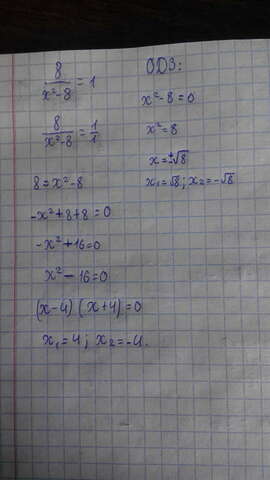 8/(x²-8) = 1
8/(x²-8) = 1/1
8 = x²-8
-x²+8+8=0
-x²+16=0
x²-16=0
(x-4)(x+4)=0
x₁=4; x₂=-4.
ОДЗ:
x²-8=0
x²=8
x=±√8
x₁=√8; x₂=-√8